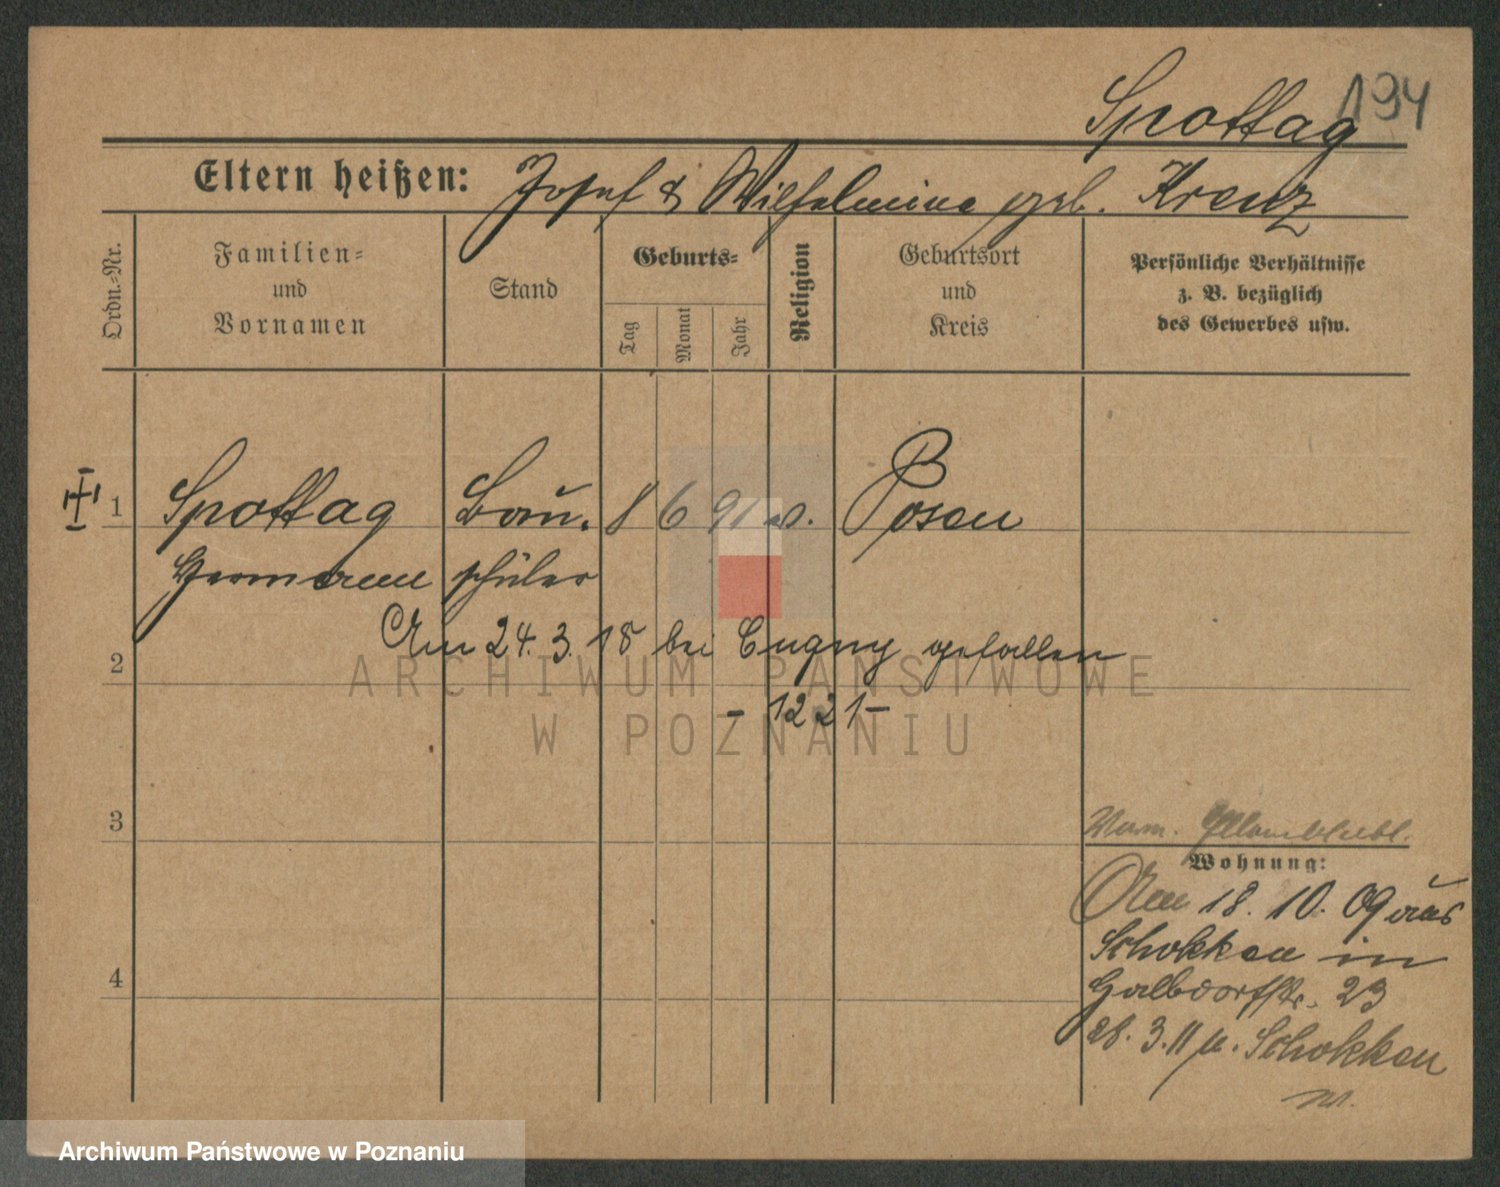 194
Spottag
Eltern heißen: Josef & Wilhelmine geb. Krenz
Ordn.-Nr.
Familien- und Vornamen
Stand
Geburts-
Tag
Monat
Jahr
Religion
Geburtsort und Kreis
Persönliche Verhältnisse
z. B. bezüglich
des Gewerbes usw.
1 Spottag Bau- 8 6 91 Posen
Hermann schüler
Am 24. 3. 18 bei Cugny gefallen
2
- 1221 -
ARCHIWUM PAŃSTWOWE
W POZNANIU
3
Wohnung:
Am 18. 10. 09 aus
Schokken in
Halbdorfstr. 23
4
28. 3. 11 n. Schokken
Archiwum Państwowe w Poznaniu